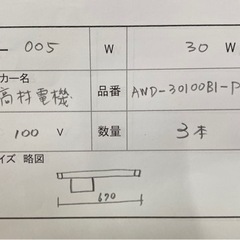 - 005 W 30 W
カー名 高林電機 品番 AND-30100B1-P
100 V 数量 3本
イズ 略図
690